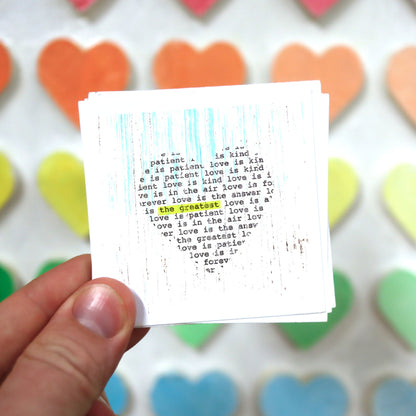 e is is
patient love is kind
e is patient love is kin
ient love is kind love is i
ve is in the air love is fo
rever love is the answer lo
is the greatest love is a
love is patient love is
love is in the air lov
ver love is the answ
the greatest lo
love is patier
love is in
forever
ar